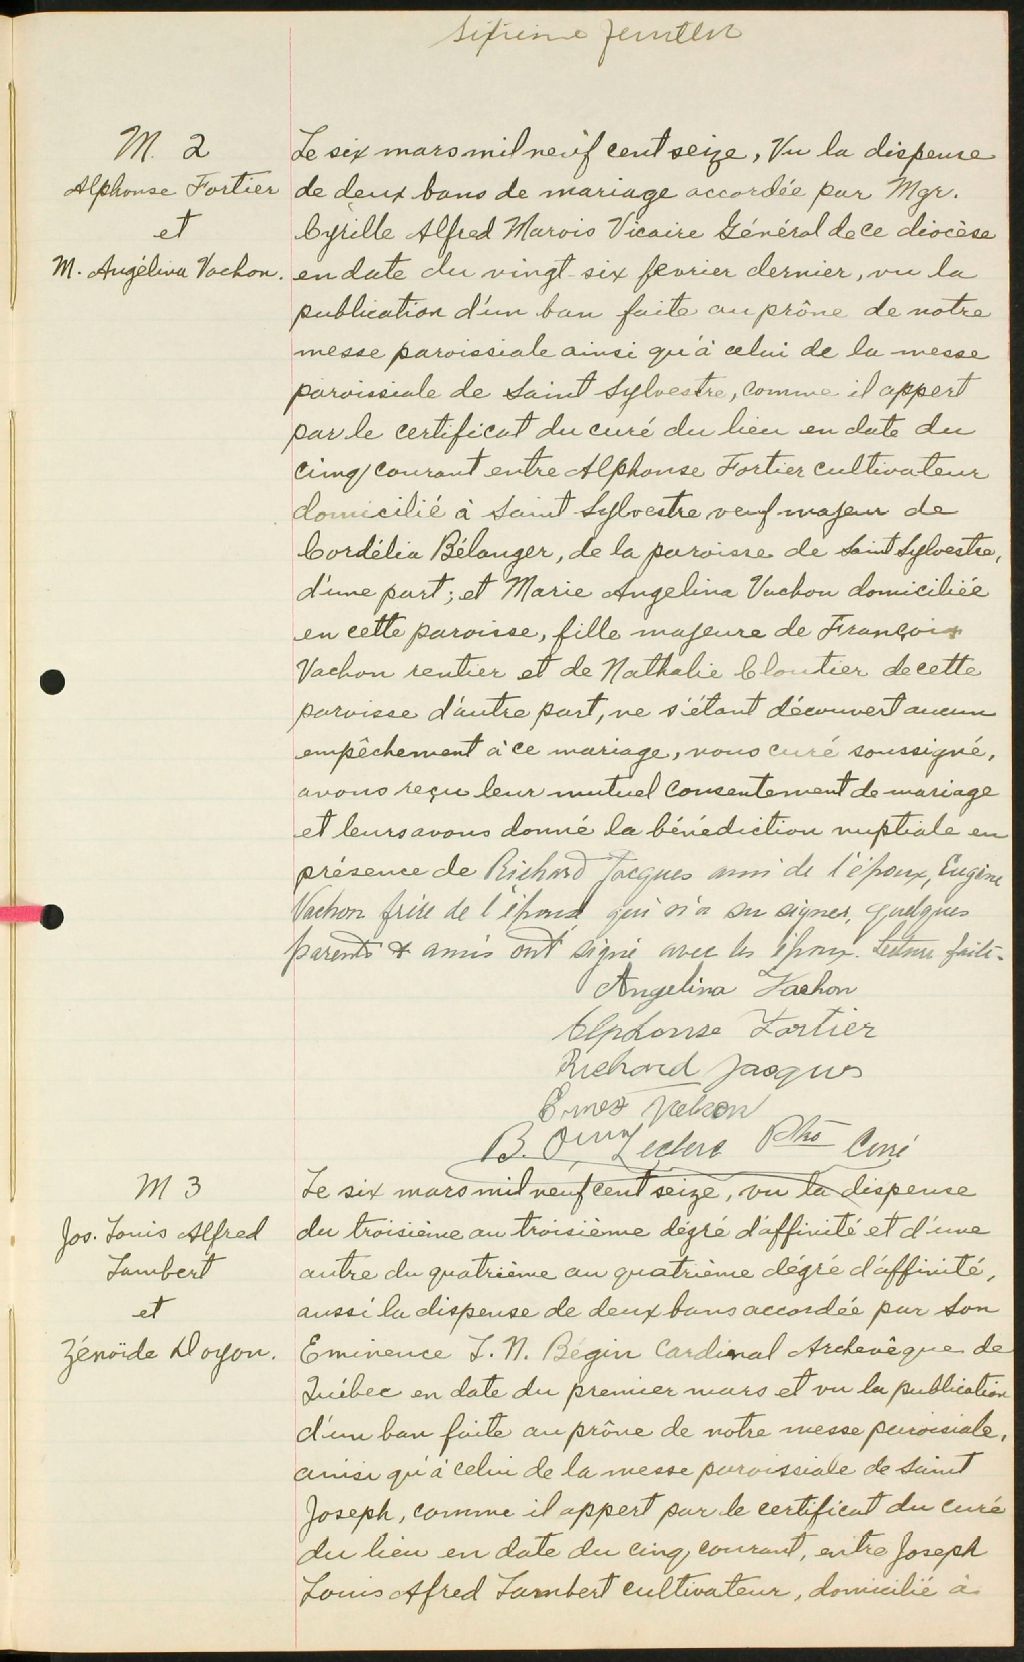 Sixième feuillet
M. 2
Alphonse Fortier
et
M. Angélina Vachon.
Le six mars mil neuf cent seize, Vu la dispense
de deux bans de mariage accordée par Mgr.
Cyrille Alfred Marois Vicaire Général de ce diocèse
en date du vingt-six fevrier dernier, vu la
publication d'un ban faite au prône de notre
messe paroissiale ainsi qu'à celui de la messe
paroissiale de Saint Sylvestre, comme il appert
par le certificat du curé du lieu en date du
cinq courant entre Alphonse Fortier cultivateur
domicilié à Saint Sylvestre veuf majeur de
Cordélia Bélanger, de la paroisse de Saint Sylvestre,
d'une part; et Marie Angelina Vachon domiciliée
en cette paroisse, fille majeure de François
Vachon rentier et de Nathalie Cloutier de cette
paroisse d'autre part, ne s'étant découvert aucun
empêchement à ce mariage, nous curé soussigné,
avons reçu leur mutuel consentement de mariage
et leurs avons donné la bénédiction nuptiale en
présence de Richard Jacques ami de l'époux, Eugène
Vachon frère de l'épouse qui n'a su signer, quelques
parents & amis ont signé avec les époux. Lecture faite.
Angelina Vachon
Alphonse Fortier
Richard Jacques
Ernest Vachon
B. Leclerc Ptre Curé
M 3
Jos. Louis Alfred
Lambert
et
Zénoïde Doyon.
Le six mars mil neuf cent seize, vu la dispense
du troisième au troisième dégré d'affinité et d'une
autre du quatrième au quatrième dégré d'affinité,
aussi la dispense de deux bans accordée par Son
Eminence L. N. Bégin Cardinal Archevêque de
Québec en date du premier mars et vu la publication
d'un ban faite au prône de notre messe paroisiale,
ainsi qu'à celui de la messe paroissiale de Saint
Joseph, comme il appert par le certificat du curé
du lieu en date du cinq courant, entre Joseph
Louis Afred Lambert cultivateur, domicilié à